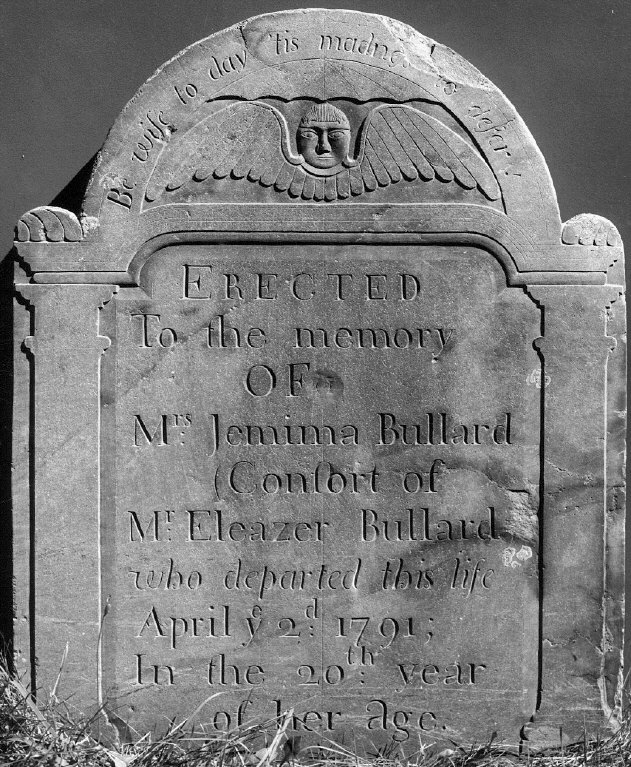 Be wise to day 'tis madness to defer:
ERECTED
To the memory
OF
Mrs. Jemima Bullard
(Conſort of
Mr. Eleazer Bullard
who departed this life
April ye 2d. 1791;
In the 20th. year
of her Age.